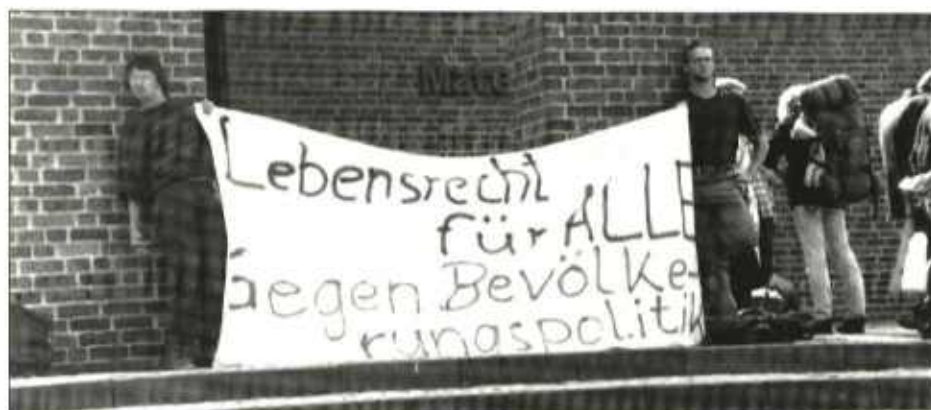 Mate
Lebensrecht
für ALLE
Gegen Bevölke-
rungspolitik